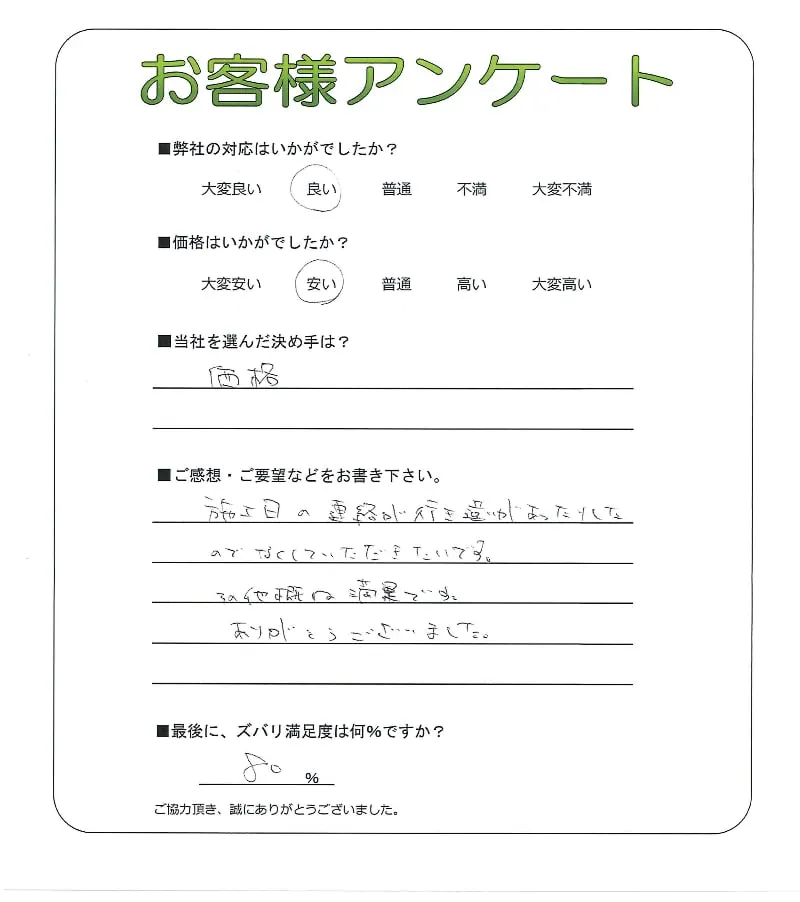 お客様アンケート
■弊社の対応はいかがでしたか？
大変良い 良い 普通 不満 大変不満
■価格はいかがでしたか？
大変安い 安い 普通 高い 大変高い
■当社を選んだ決め手は？
価格
■ご感想・ご要望などをお書き下さい。
施工日の連絡が行き違いがあったりした
のでなくしていただきたいです。
その他概ね満足です。
ありがとうございました。
■最後に、ズバリ満足度は何%ですか？
80 %
ご協力頂き、誠にありがとうございました。